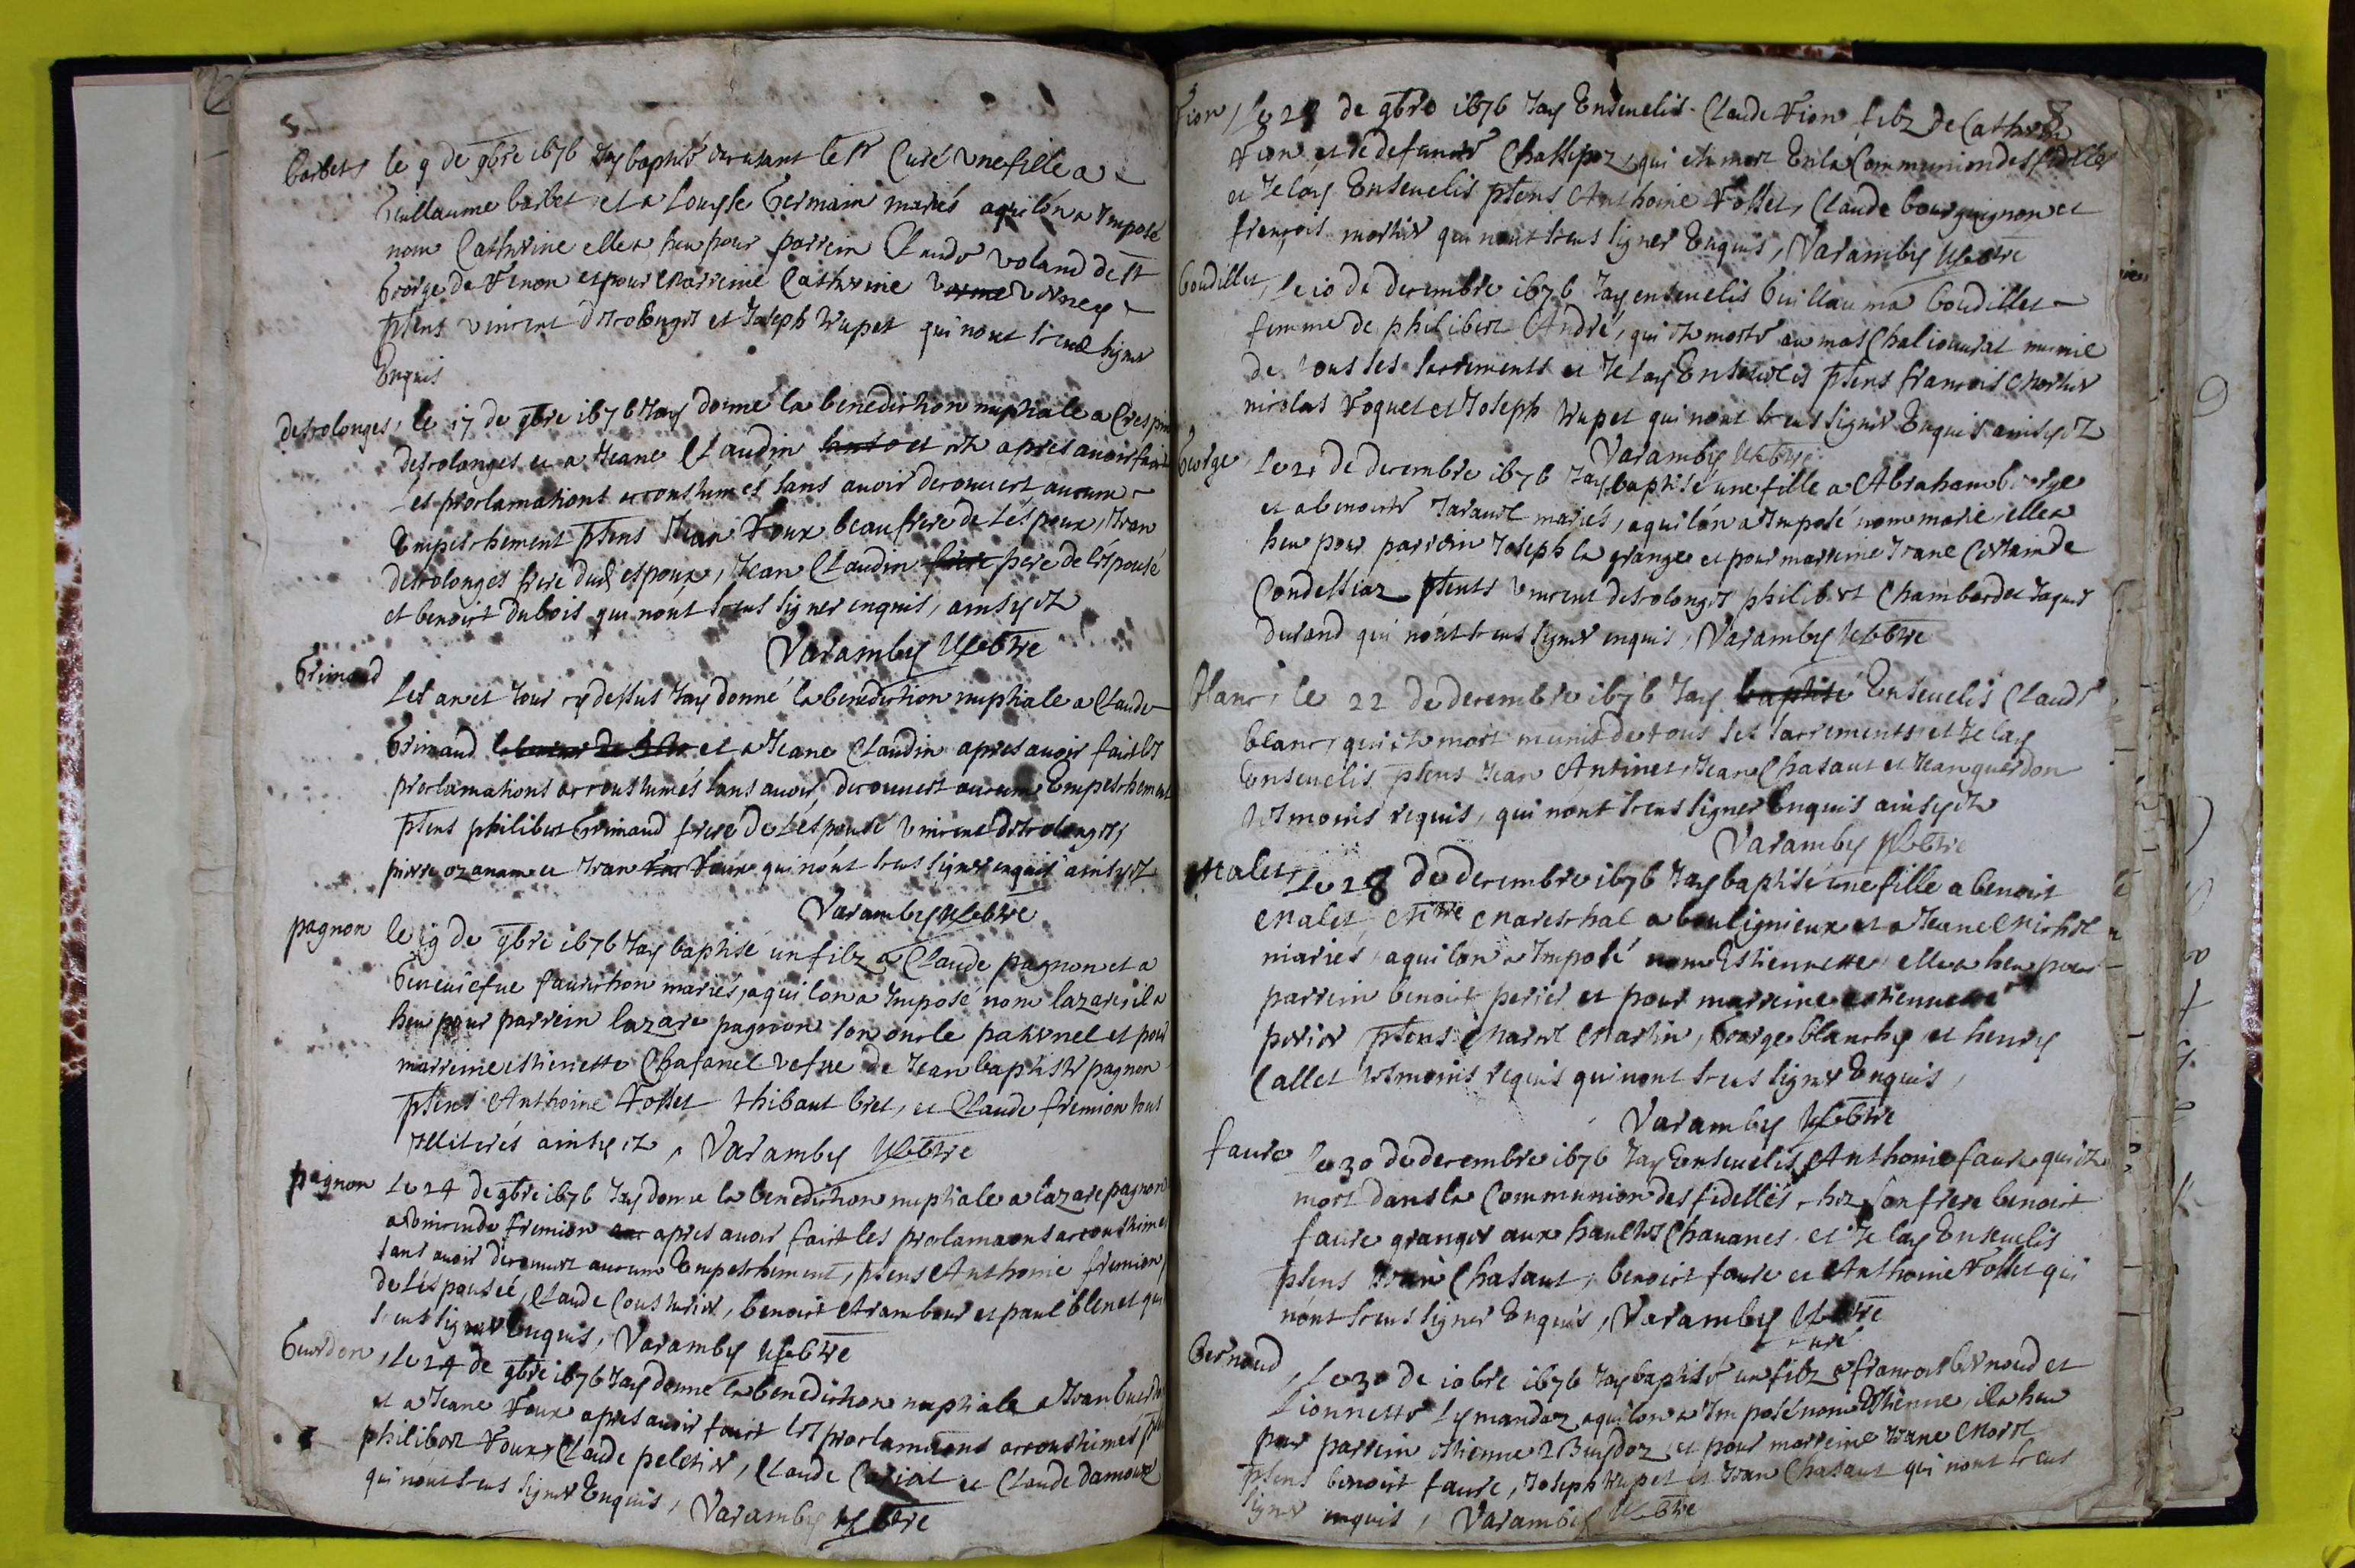 barbet le 9 de 9bre 1676 Jay baptisé en absant le Sr Curé une fille a
Guillaume barbet et a Louyse Germain mariés aqui lón a Imposé
nom Cathrine elle a heu pour parrein Claude voland de St
George de Renon et pour Marreine Cathrine verney
pñts vincent desrolonges et Joseph Wupet qui nont sceus signer
Enquis
desrolonges, le 17 de 9bre 1676 Jay donné la benediction nuptiale a Crespin
desrolonges et a Jeane Claudin apres avoir fait
les proclamations accoustumés sans avoir decouvert aucune
Empeschement pñts Jean Roux beau frere de Lespoux, Jean
desrolonges frere dud espoux, Jean Claudin pere de lespousé
et benoist dubois qui nónt sceus signer enquis, ainsy est
Varamby pbtre
Grimaud
Les an et Jour cy dessus Jay donné la benediction nuptiale a Claude
Grimaud et a Jeane Claudin apres avoir fait les
proclamations accoustumés sans avoir decouvert aucune Empeschement
pñts philibert Grimaud frere de Lespousé vincent desrolonges,
pierre ozaname et Jean Roux qui nónt sceus signer enquis ainsy est
Varamby pbtre
pagnon le 19 de 9bre 1676 Jay baptisé un filz a Claude pagnon et a
Geneuiefue faurichon mariés, aqui lon a Imposé nom lazare, il a
heu pour parrein lazare pagnon son oncle paternel et pour
marreine estienette Chasanel vefue de Jean baptiste pagnon
pñts Anthoine Rosset thibaut bret, et Claude fremion tous
Illiterés ainsy est, Varamby pbtre
pagnon Le 24 de 9bre 1676 Jay donne la benediction nuptiale a lazare pagnon
a fremion apres avoir fait les proclamaons accoustumes
sans avoir decouvert aucune Empeschement, pñts Anthoine fremion
de léspouséé, Claude Cousturier, benoist Arambour et paul blenet qui
sceus signer Enquis, Varamby pbtre
Guerdon, Le 24 de 9bre 1676 Jay donne la benediction nuptiale a Jean Guerdon
et a Jeane Roux apres avoir fait les proclamations accoustumés
philibert Roux, Claude peletier, Claude Cariat et Claude damour
qui nont sceus signer Enquis, Varamby pbtre
8
Rion, Le 28 de 9bre 1676 Jay Enseuelis Claude Rion filz de Cathrine
Rion et de defunct Chassipoz, qui est mort En la Communion des fidelles
et Je lay Enseuelis pñts Anthoine Rosset, Claude bourguignon et
françois mortier qui nont sceus signer Enquis, Varamby pbtre
Goudillet, Le 10 de decembre 1676 Jay enseuelis Guillauma Goudillet
femme de philibert André, qui est morte au mas Chaliouvrat munie
de tous ses sacrements et Je lay Enseuelis pñts francois Mortier
nicolas Roquet et Joseph Wupet qui nont sceus signer Enquis ainsy est
Varamby pbtre
George Le 21 de decembre 1676 Jay baptisé une fille a Abraham George
et a benoiste Jarauit mariés, aqui lón a Imposé nom marie, elle a
heu pour parrein Joseph la grange et pour marreine Jeane Certain de
Condessiaz pñts vincent desrolonges philibert Chambard et Jaques
durand qui nónt sceus signer enquis, Varamby pbtre
blanc, le 22 de decembre 1676 Jay baptisé Enseuelis Claude
blanc, qui est mort munis de tous ses sacrements et Je lay
Enseuelis pñts Jean Antinet, Jean Chasaut et Jean querdon
tesmoins requis, qui nónt sceus signer Enquis ainsy est
Varamby pbtre
Malet, Le 28 de decembre 1676 Jay baptisé une fille a benoist
Malet, Mtre Mareschal a bouligneux et a Jeane Michel
mariés, aqui lon a Imposé nom Estiennette elle a heu pour
parrein benoist perier et pour marreine estiennette
perier pñts Marcel Martin, George blanchy et henry
Callet tesmoins requis qui nont sceus signer Enquis,
Varamby pbtre
faure Le 30 de decembre 1676 Jay Enseuelis Anthoine faure qui est
mort dans la Communion des fidellés chez son frere benoist
faure granger aux haultes Chavanes, et Je lay Enseuelis
pñts Jean Chasaut, benoist faure et Anthoine Rosset qui
nónt sceus signer Enquis, Varamby pbtre
curé
Bernoud, Le 30 de 10bre 1676 Jay baptisé un filz a francois bernoud et
Lionnette Lymandaz aqui lon a Imposé nom Estienne, il a heu
pour parrein estienne Buydoz, et pour marreine Jeane Morel
pñts benoist faure, Joseph Wupet et Jean Chasaut qui nont sceus
signer enquis, Varamby pbtre